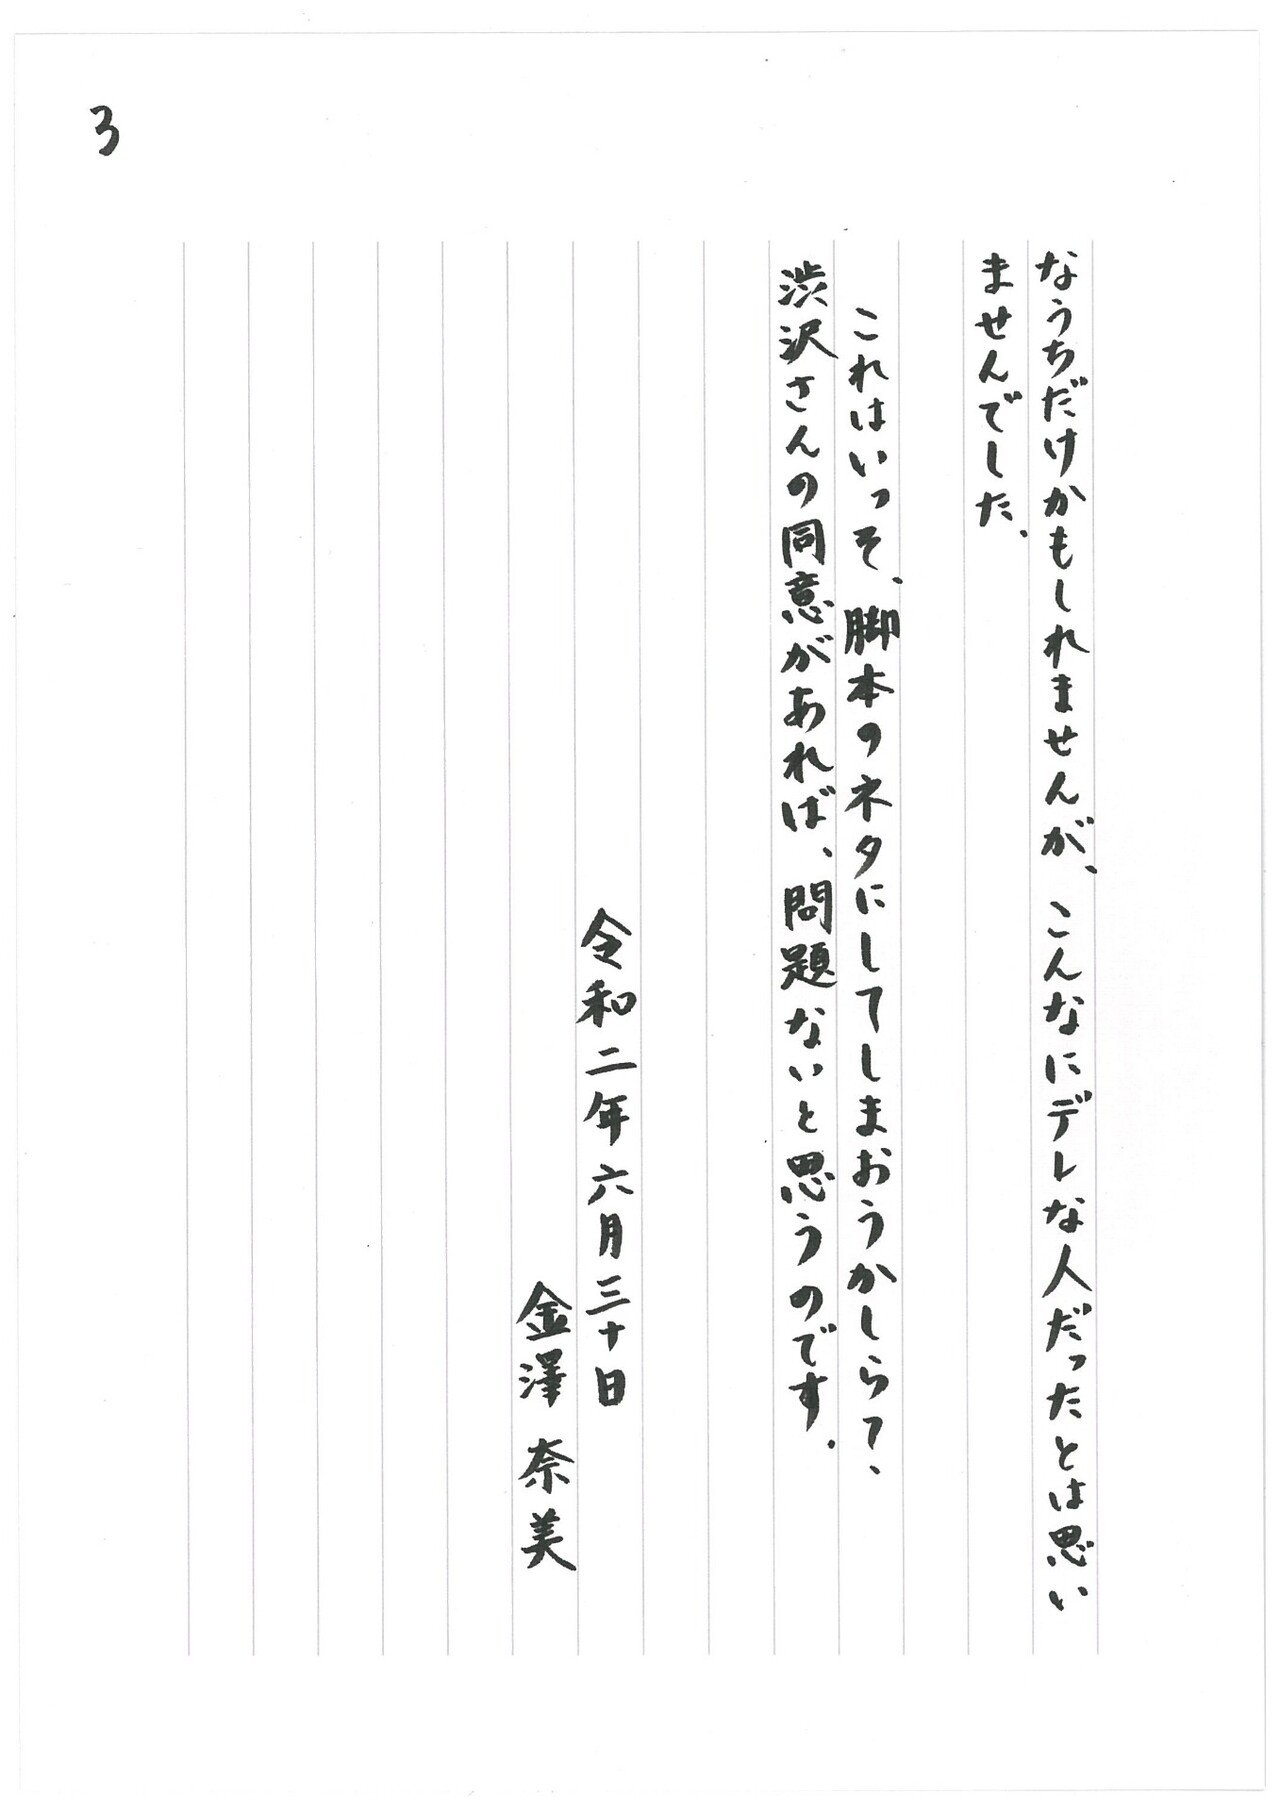 3
なうちだけかもしれませんが、こんなにデレな人だったとは思い
ませんでした。
これはいっそ、脚本のネタにしてしまおうかしら？、
渋沢さんの同意があれば、問題ないと思うのです。
令和二年六月三十日
金澤奈美